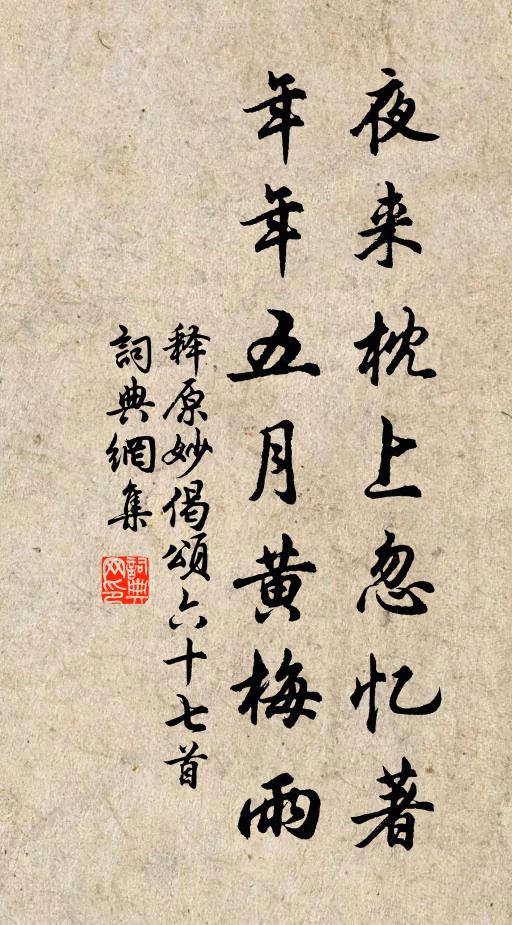 夜来枕上忽忆著
年年五月黄梅雨
释原妙偈颂六十七首
詞典網集
詞典網印